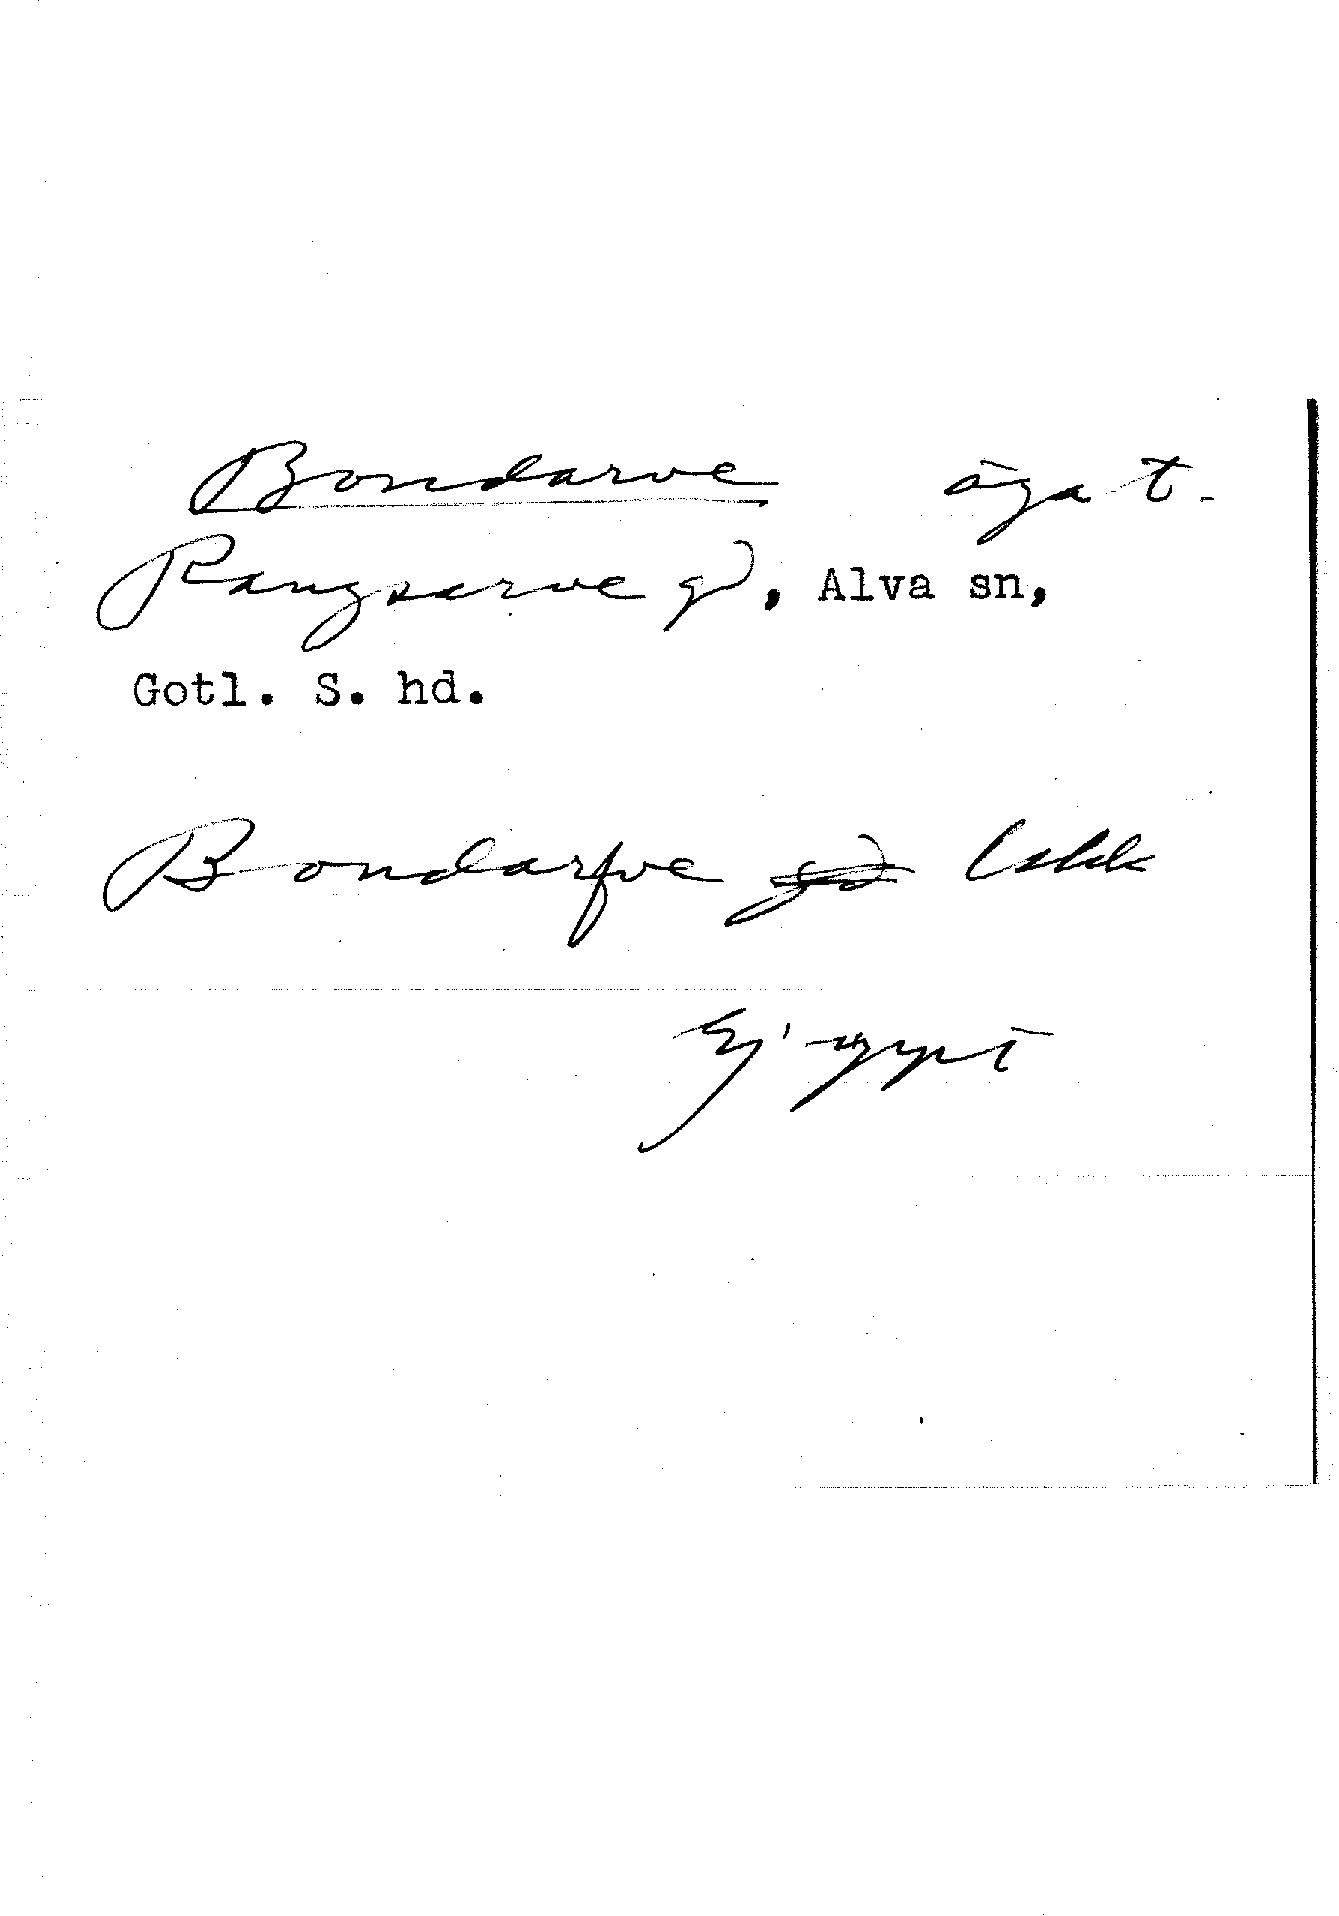 Bondarve ägat.
Rangsarve gd, Alva sn,
Gotl. S. hd.
Bondarfve Uskk
Ej uppt